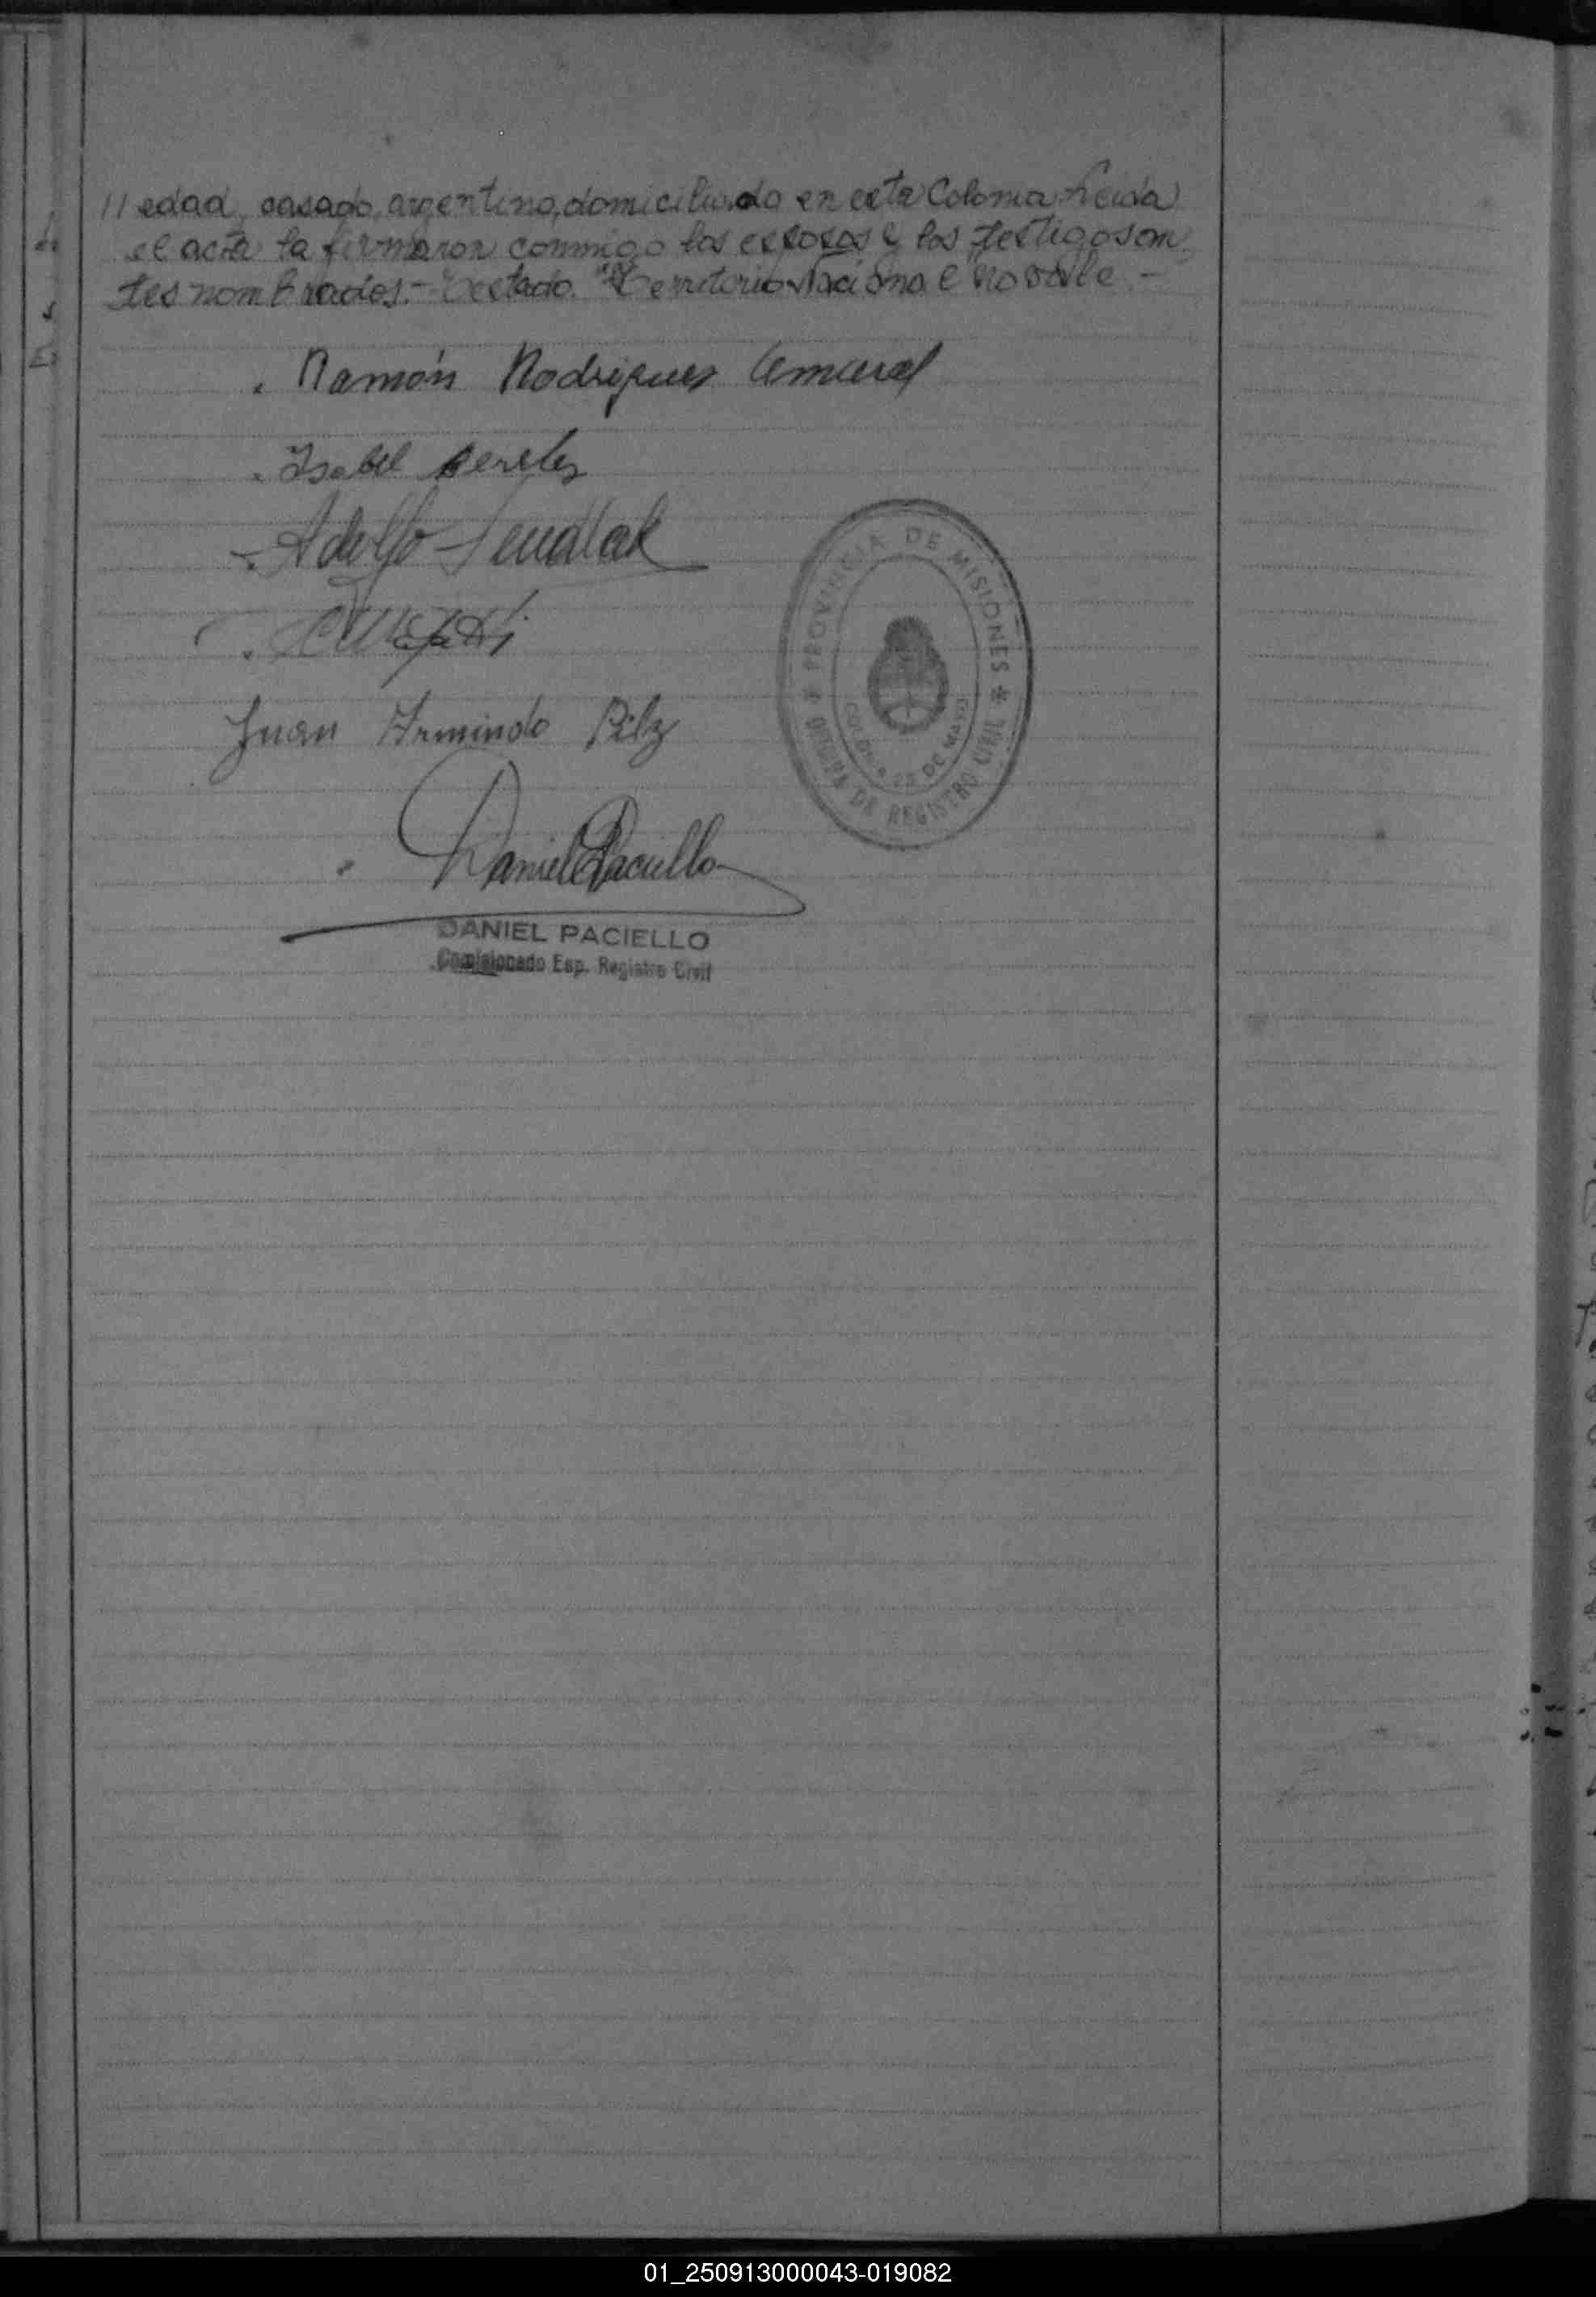 // edad, casado, argentino, domiciliado en esta Colonia. Leida
el acta la firmaron conmigo los esposos y los testigos an
tes nombrados.- Testado. "Territorio Nacional" no vale.-
Ramón Rodrigues Amaral
Isabel Pereles
Adolfo
Juan Armindo Pilz
Daniel Paciello
DANIEL PACIELLO
Comisionado Esp. Registro Civil
PROVINCIA DE MISIONES
COLONIA 25 DE MAYO
DE REGISTRO CIVIL
01_250913000043-019082